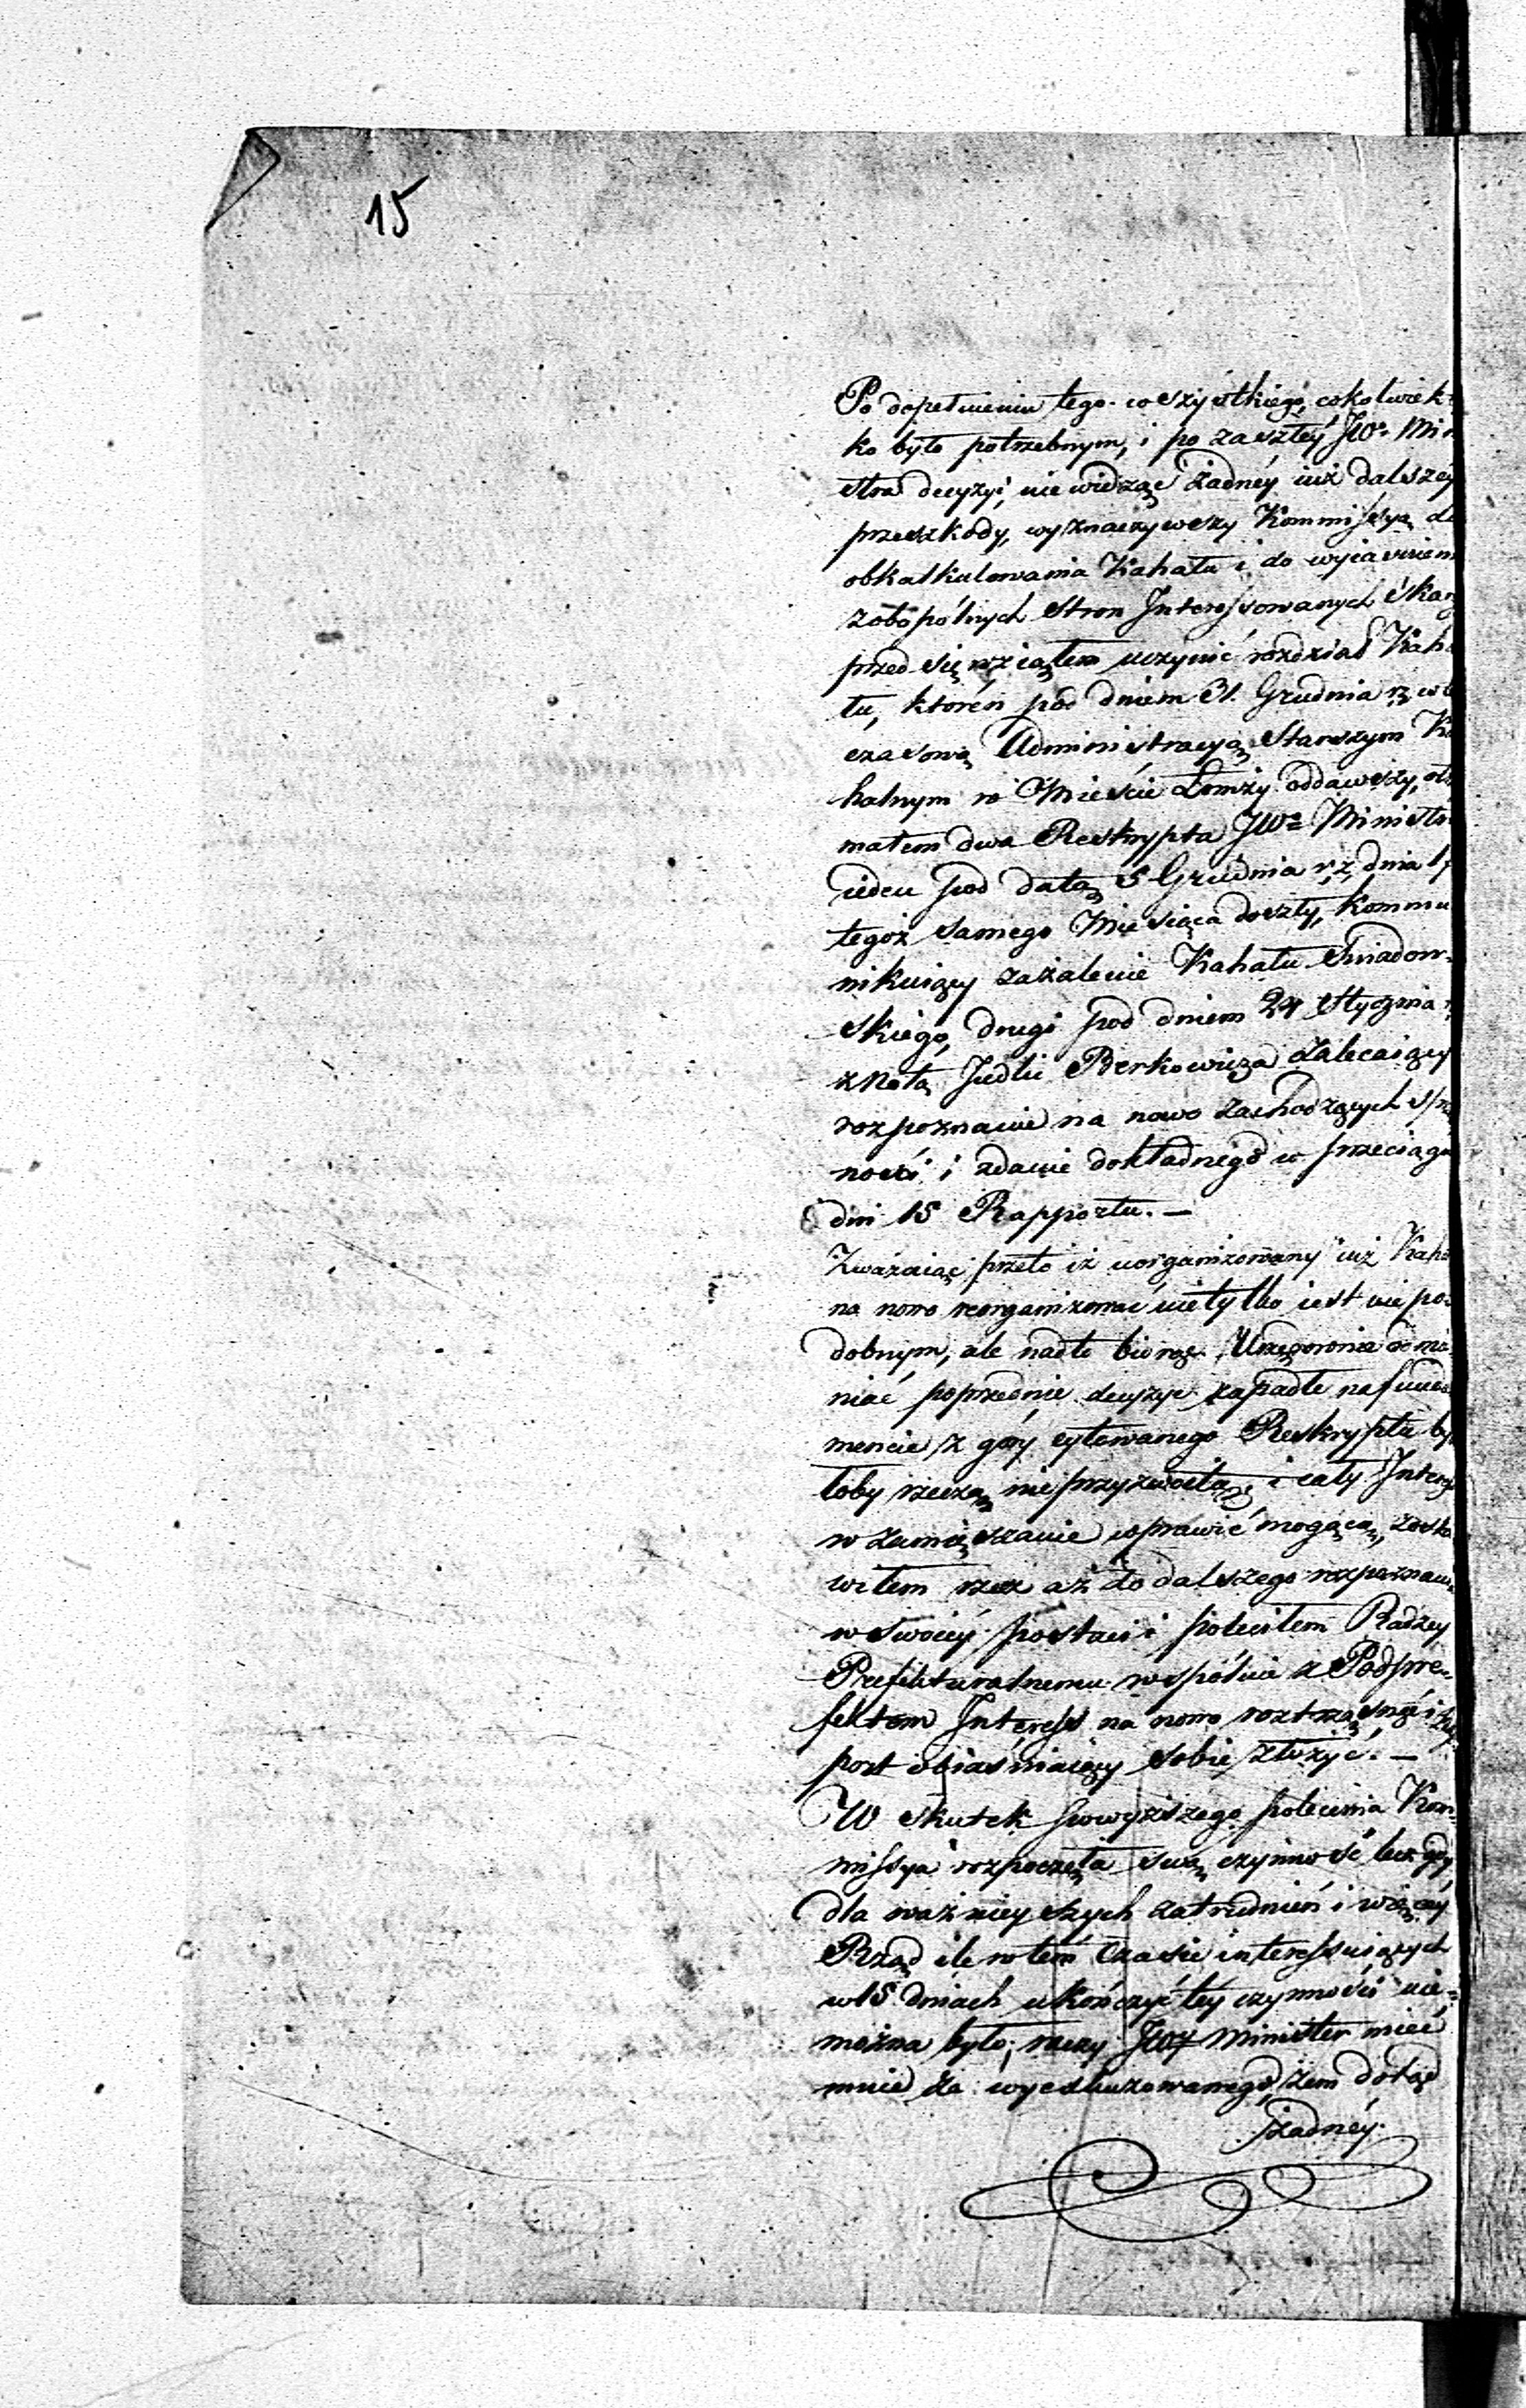 15
Po dopełnieniu tego wszystkiego, cokolwiek
ko było potrzebnym, i po zaszłey JWo Min
stra decyzyi, nie widząc żadnéy iuż dalszéy
przeszkody, wyznaczywszy Kommissyą do
obkalkulowania Kahału i do wyiawienia
zobopólnych stron Interessowanych skarg
przedsięwziąłem uczynić rozdział Kaha
łu, któren pod dniem 31. Grudnia
czasową Administracyą Starszym Ka
halnym w Mieście Łomży oddawszy, otrzy
małem dwa Reskrypta JWo Ministra
ieden pod datą 5 Grudnia r. z. dnia 17
tegoż samego Miesiąca doszły, kommu
nikuiący zażalenie Kahału Sniadow-
skiego, drugi pod dniem 24 Stycznia r
z Notą Judki Berkowicza zalecaiący
rozpoznanie na nowo zachodzących sprze
ności i zdanie dokładnego w przeciągu
dni 15 Rapportu. —
Zważaiąc przeto iż uorganizowany iuż Kaha
na nowo reorganizować nie tylko iest niepo-
dobnym, ale nadto biorąc Urzędownie odmie
niać poprzednie decyzye zapadłe na funda
mencie z góry cytowanego Reskryptu by
łoby rzeczą nieprzyzwoitą i cały Interes
w zamięszanie wprawić mogącą, zosta
wiłem rzecz aż do dalszego rozpoznania
w swoiéy postaci i poleciłem Radzcy
Prefekturalnemu wspólnie z Podpre-
fektem Interess na nowo roztrząsnąć i Rap
port obiaśniaiący sobie złożyć. —
W skutek powyższego polecenia Kom-
missya rozpoczęła swą czynność lecz gdy
dla ważnieyszych zatrudnień i więcéy
Rząd ile w tém czasie interessuiących
w 15 dniach ukończyć téy czynności nie-
można było, raczy JWy Minister mieć
mnie za wyexkuzowanego, żem dotąd
żadnéy.